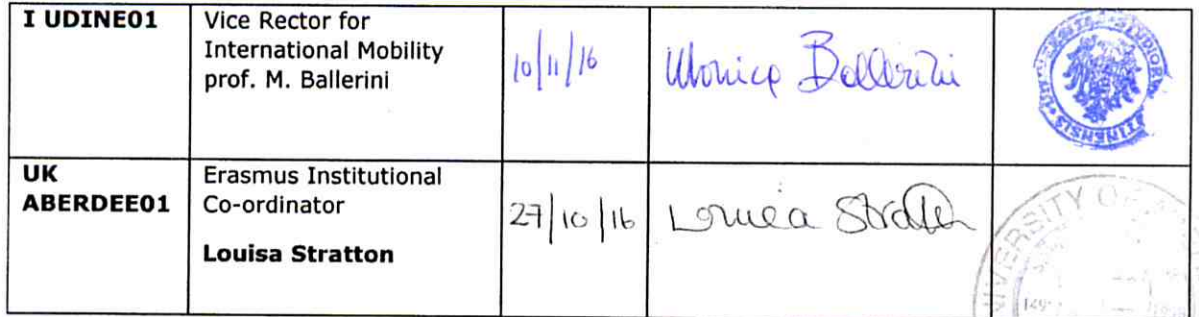 I UDINE01
Vice Rector for
International Mobility
prof. M. Ballerini
10/11/16
Monica Ballerini
UK
ABERDEE01
Erasmus Institutional
Co-ordinator
Louisa Stratton
27/10/16
Louisa Stratton
UNIVERSITY OF